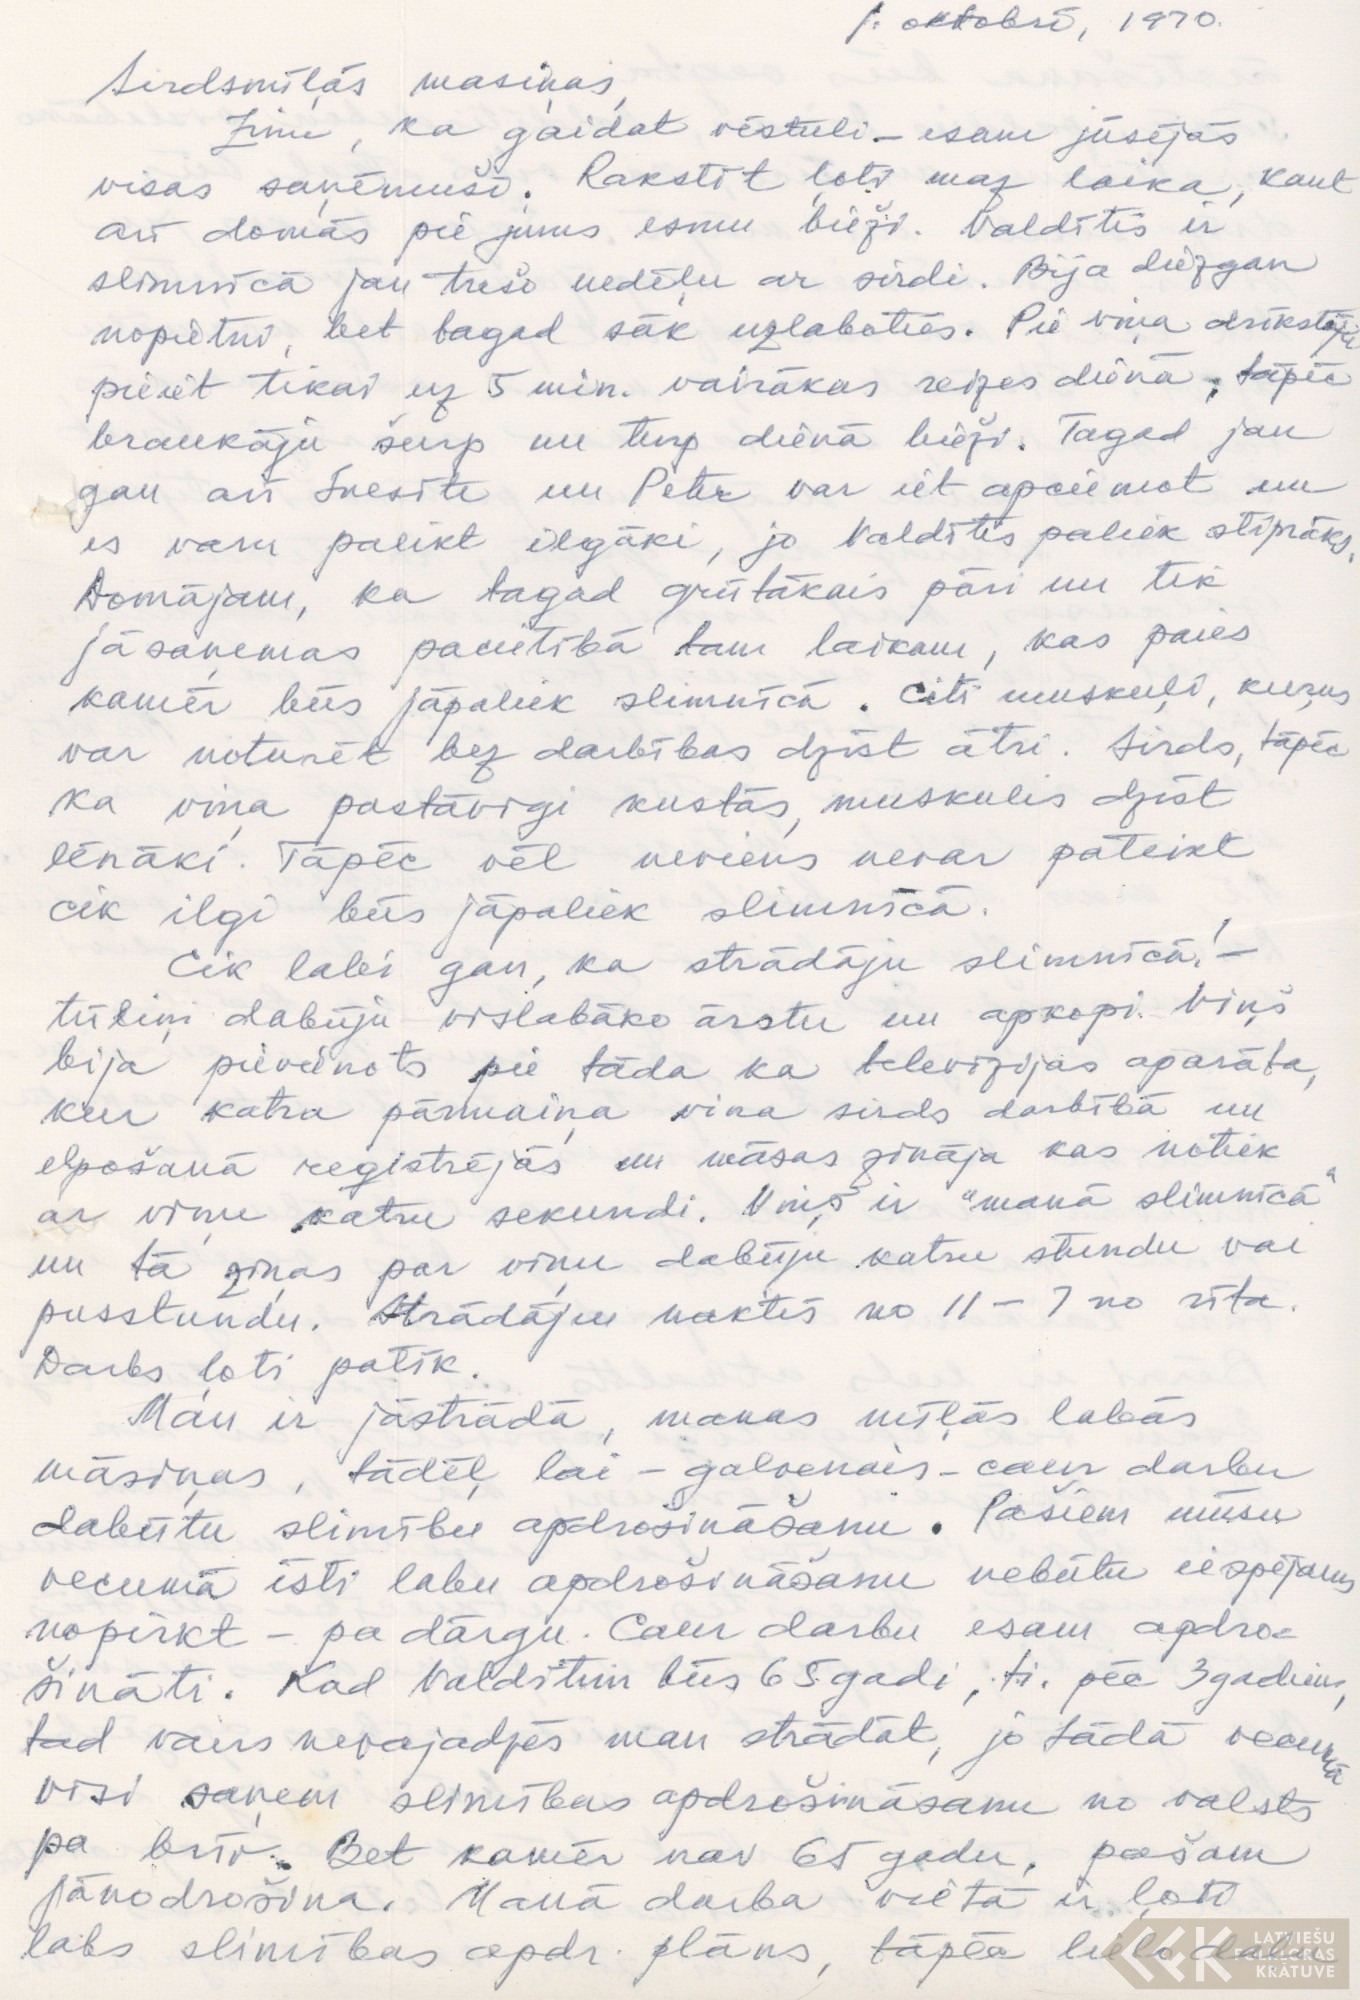 1. oktobrī, 1970.
Sirdsmīļās masiņas,
Zinu, ka gaidat vēstuli – esam jūsējās
visas saņēmuši. Rakstīt ļoti maz laika, kaut
arī domās pie jums esmu bieži. Valdītis ir
slimnīcā jau trešo nedēļu ar sirdi. Bija diezgan
nopietni, bet tagad sāk uzlaboties. Pie viņa drīkstēju
pieiet tikai uz 5 min. vairākas reizes dienā, tāpēc
braukāju šurp un turp dienā bieži. Tagad jau
gan arī Inesīte un Peter var iet apciemot un
es varu palikt ilgāki, jo Valdītis paliek stiprāks.
Domājam, ka tagad grūtākais pāri un tik
jāsaņemas pacietībā tam laikam, kas paies
kamēr būs jāpaliek slimnīcā. Citi muskuļi, kuŗus
var noturēt bez darbības dzīst ātri. Sirds, tāpēc
ka viņa pastāvīgi kustās, muskulis dzīst
lēnāki. Tāpēc vēl neviens nevar pateikt
cik ilgi būs jāpaliek slimnīcā.
Cik labi gan, ka strādāju slimnīcā! –
tūliņ dabūju vislabāko ārstu un apkopi. Viņš
bija pievienots pie tāda kā televīzijas aparāta,
kur katra pārmaiņa viņa sirds darbībā un
elpošanā reģistrējās un māsas zināja kas notiek
ar viņu katru sekundi. Viņš ir "manā slimnīcā"
un tā ziņas par viņu dabūju katru stundu vai
pusstundu. Strādāju naktīs no 11 – 7 no rīta.
Darbs ļoti patīk.
Man ir jāstrādā, manas mīļās labās
māsiņas, tādēļ, lai – galvenais – caur darbu
dabūtu slimību apdrošināšanu. Pašiem mūsu
vecumā īsti labu apdrošināšanu nebūtu iespējams
nopirkt – pa dārgu. Caur darbu esam apdro-
šināti. Kad Valdītim būs 65 gadi, t.i. pēc 3 gadiem,
tad vairs nevajadzēs man strādāt, jo tādā vecumā
visi saņem slimības apdrošināšanu no valsts
pa brīvi. Bet kamēr nav 65 gadu, pašam
jānodrošina. Manā darba vietā ir ļoti
labs slimības apdr. plāns, tāpēc lielo daļu
LATVIEŠU
FOLKLORAS
KRĀTUVE